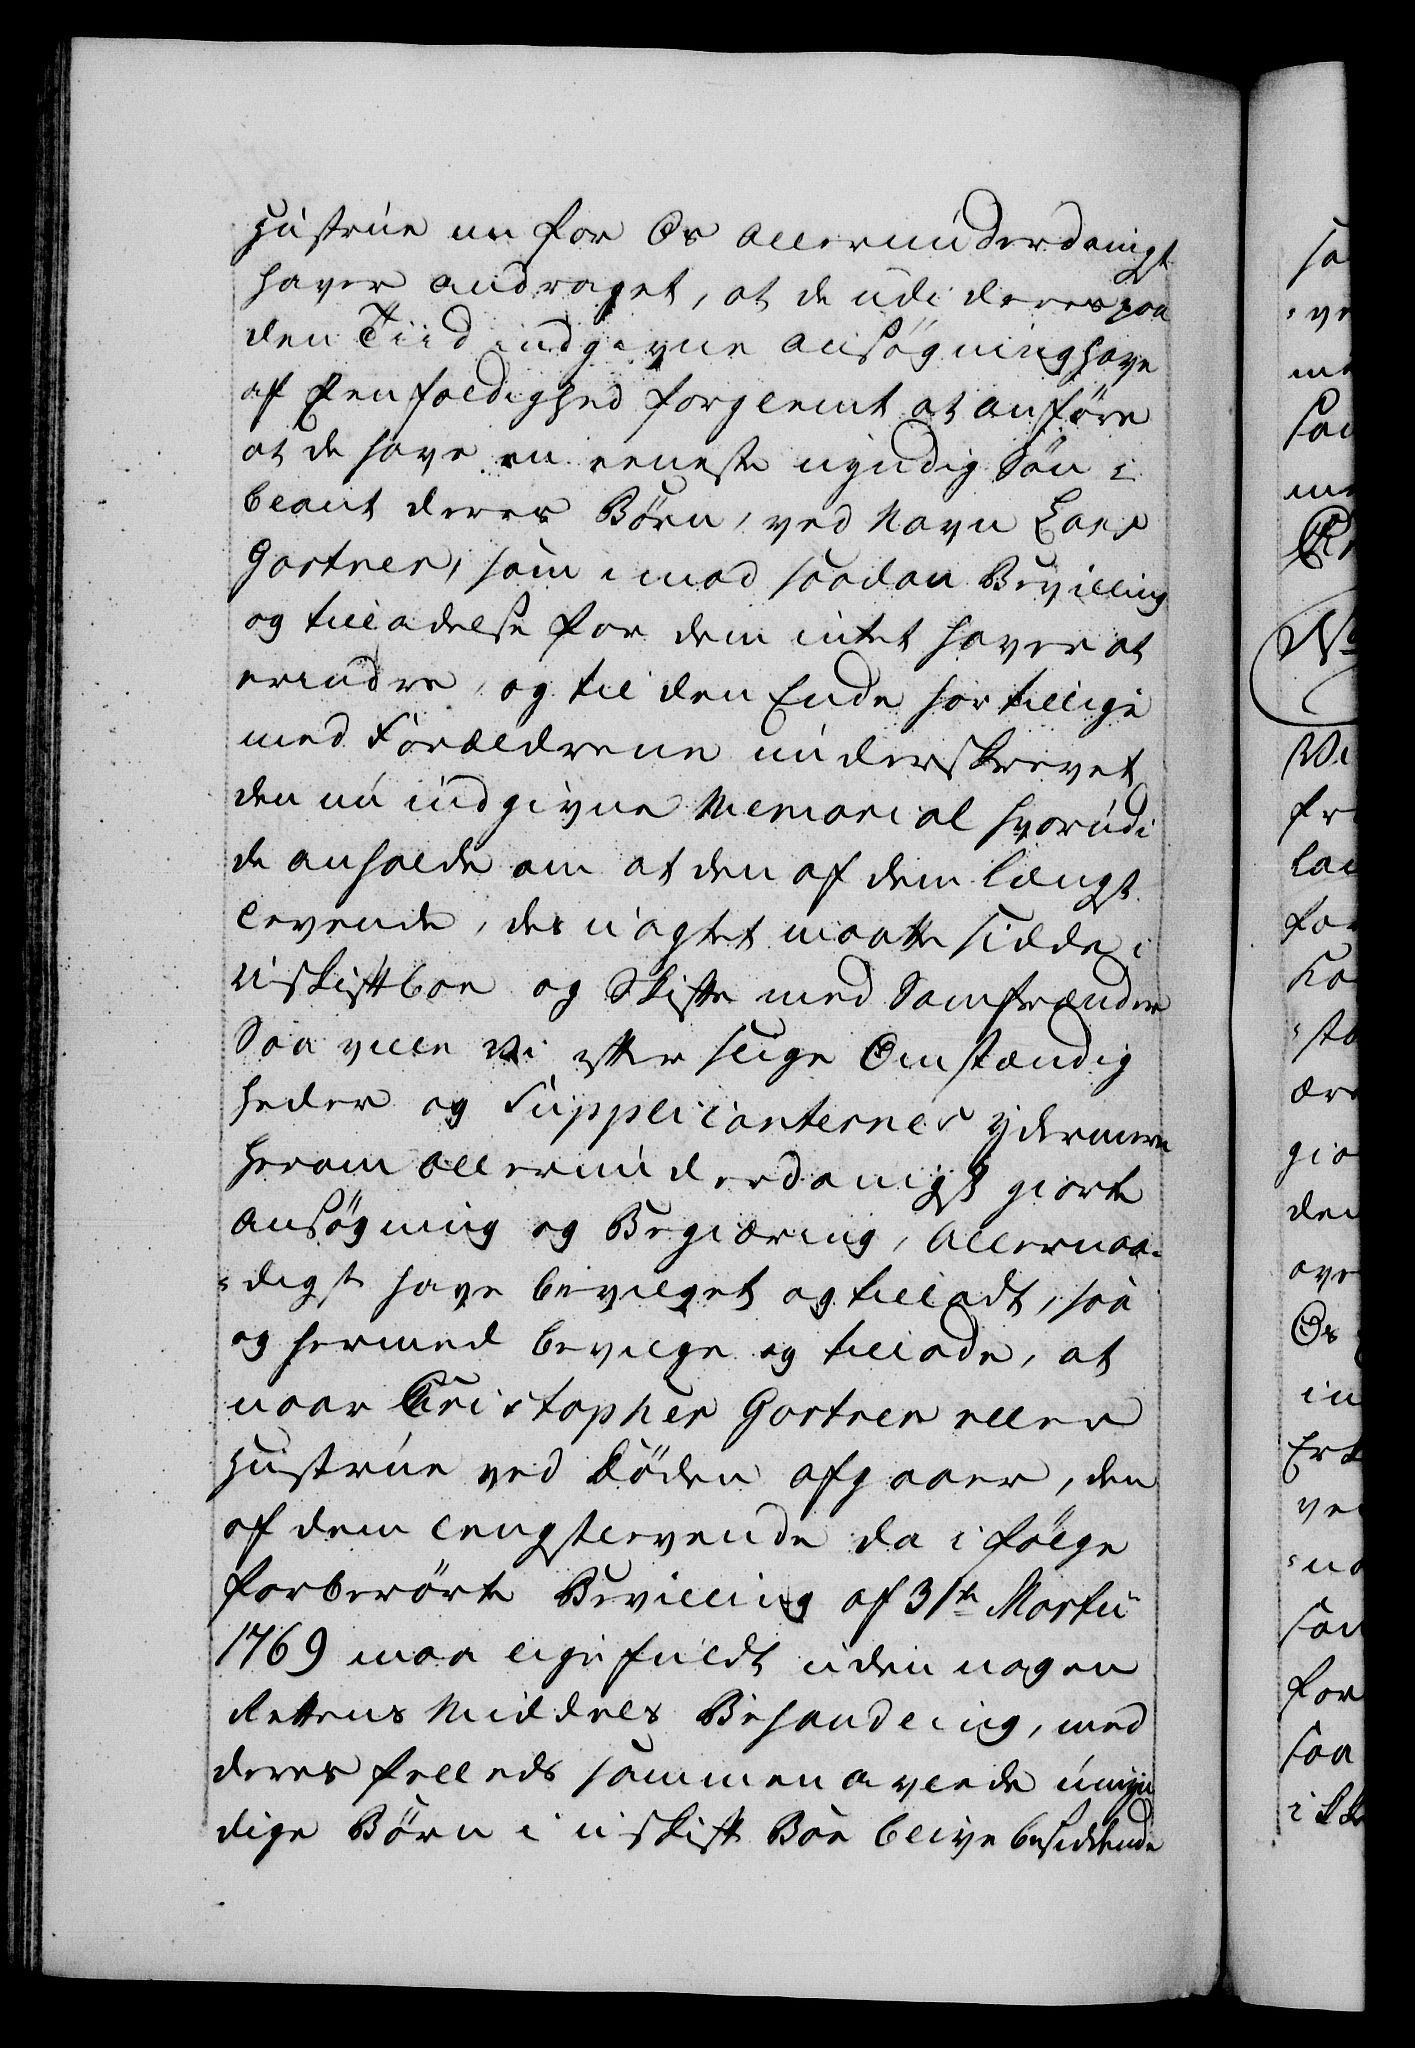 Hustrue nu for Os allerunderdanigst
haver andraget, at de udi deres paa
den Tiid indgivne ansøgning have
af Eenfoldighed forglemt at anføre
at de have en eeneste myndig Søn i
blant deres Børn, ved Navn Lars
Gartner, som imod saadan Bevilling
og tilladelse for dem intet haver at
erindre, og til den Ende har tillige
med Forældrene underskrevet
den nu indgivne Memorial hvorudi
de anholde om at den af dem længst
levende, des uagtet maatte sidde i
uskiftboe og Skifte med Samfrænder
Saa ville Vi efter slige Omstændig
heder og Supplicanternes ydermere
herom allerunderdanigst giorte
ansøgning og Begiæring, allernaa-
-digst have bevilget og tilladt, saa
og hermed bevilge og tillade, at
naar Christopher Gartner eller
Hustrue ved Døden afgaaer, den
af dem lengstlevende da i følge
forberørte Bevilling af 31te Martii
1769 maa ligefuldt uden nogen
Rettens Middels Behandling, med
deres felleds sammen avlede umyn
dige Børn i uskift Boe blive besiddende
sa
Os
in
for
saa